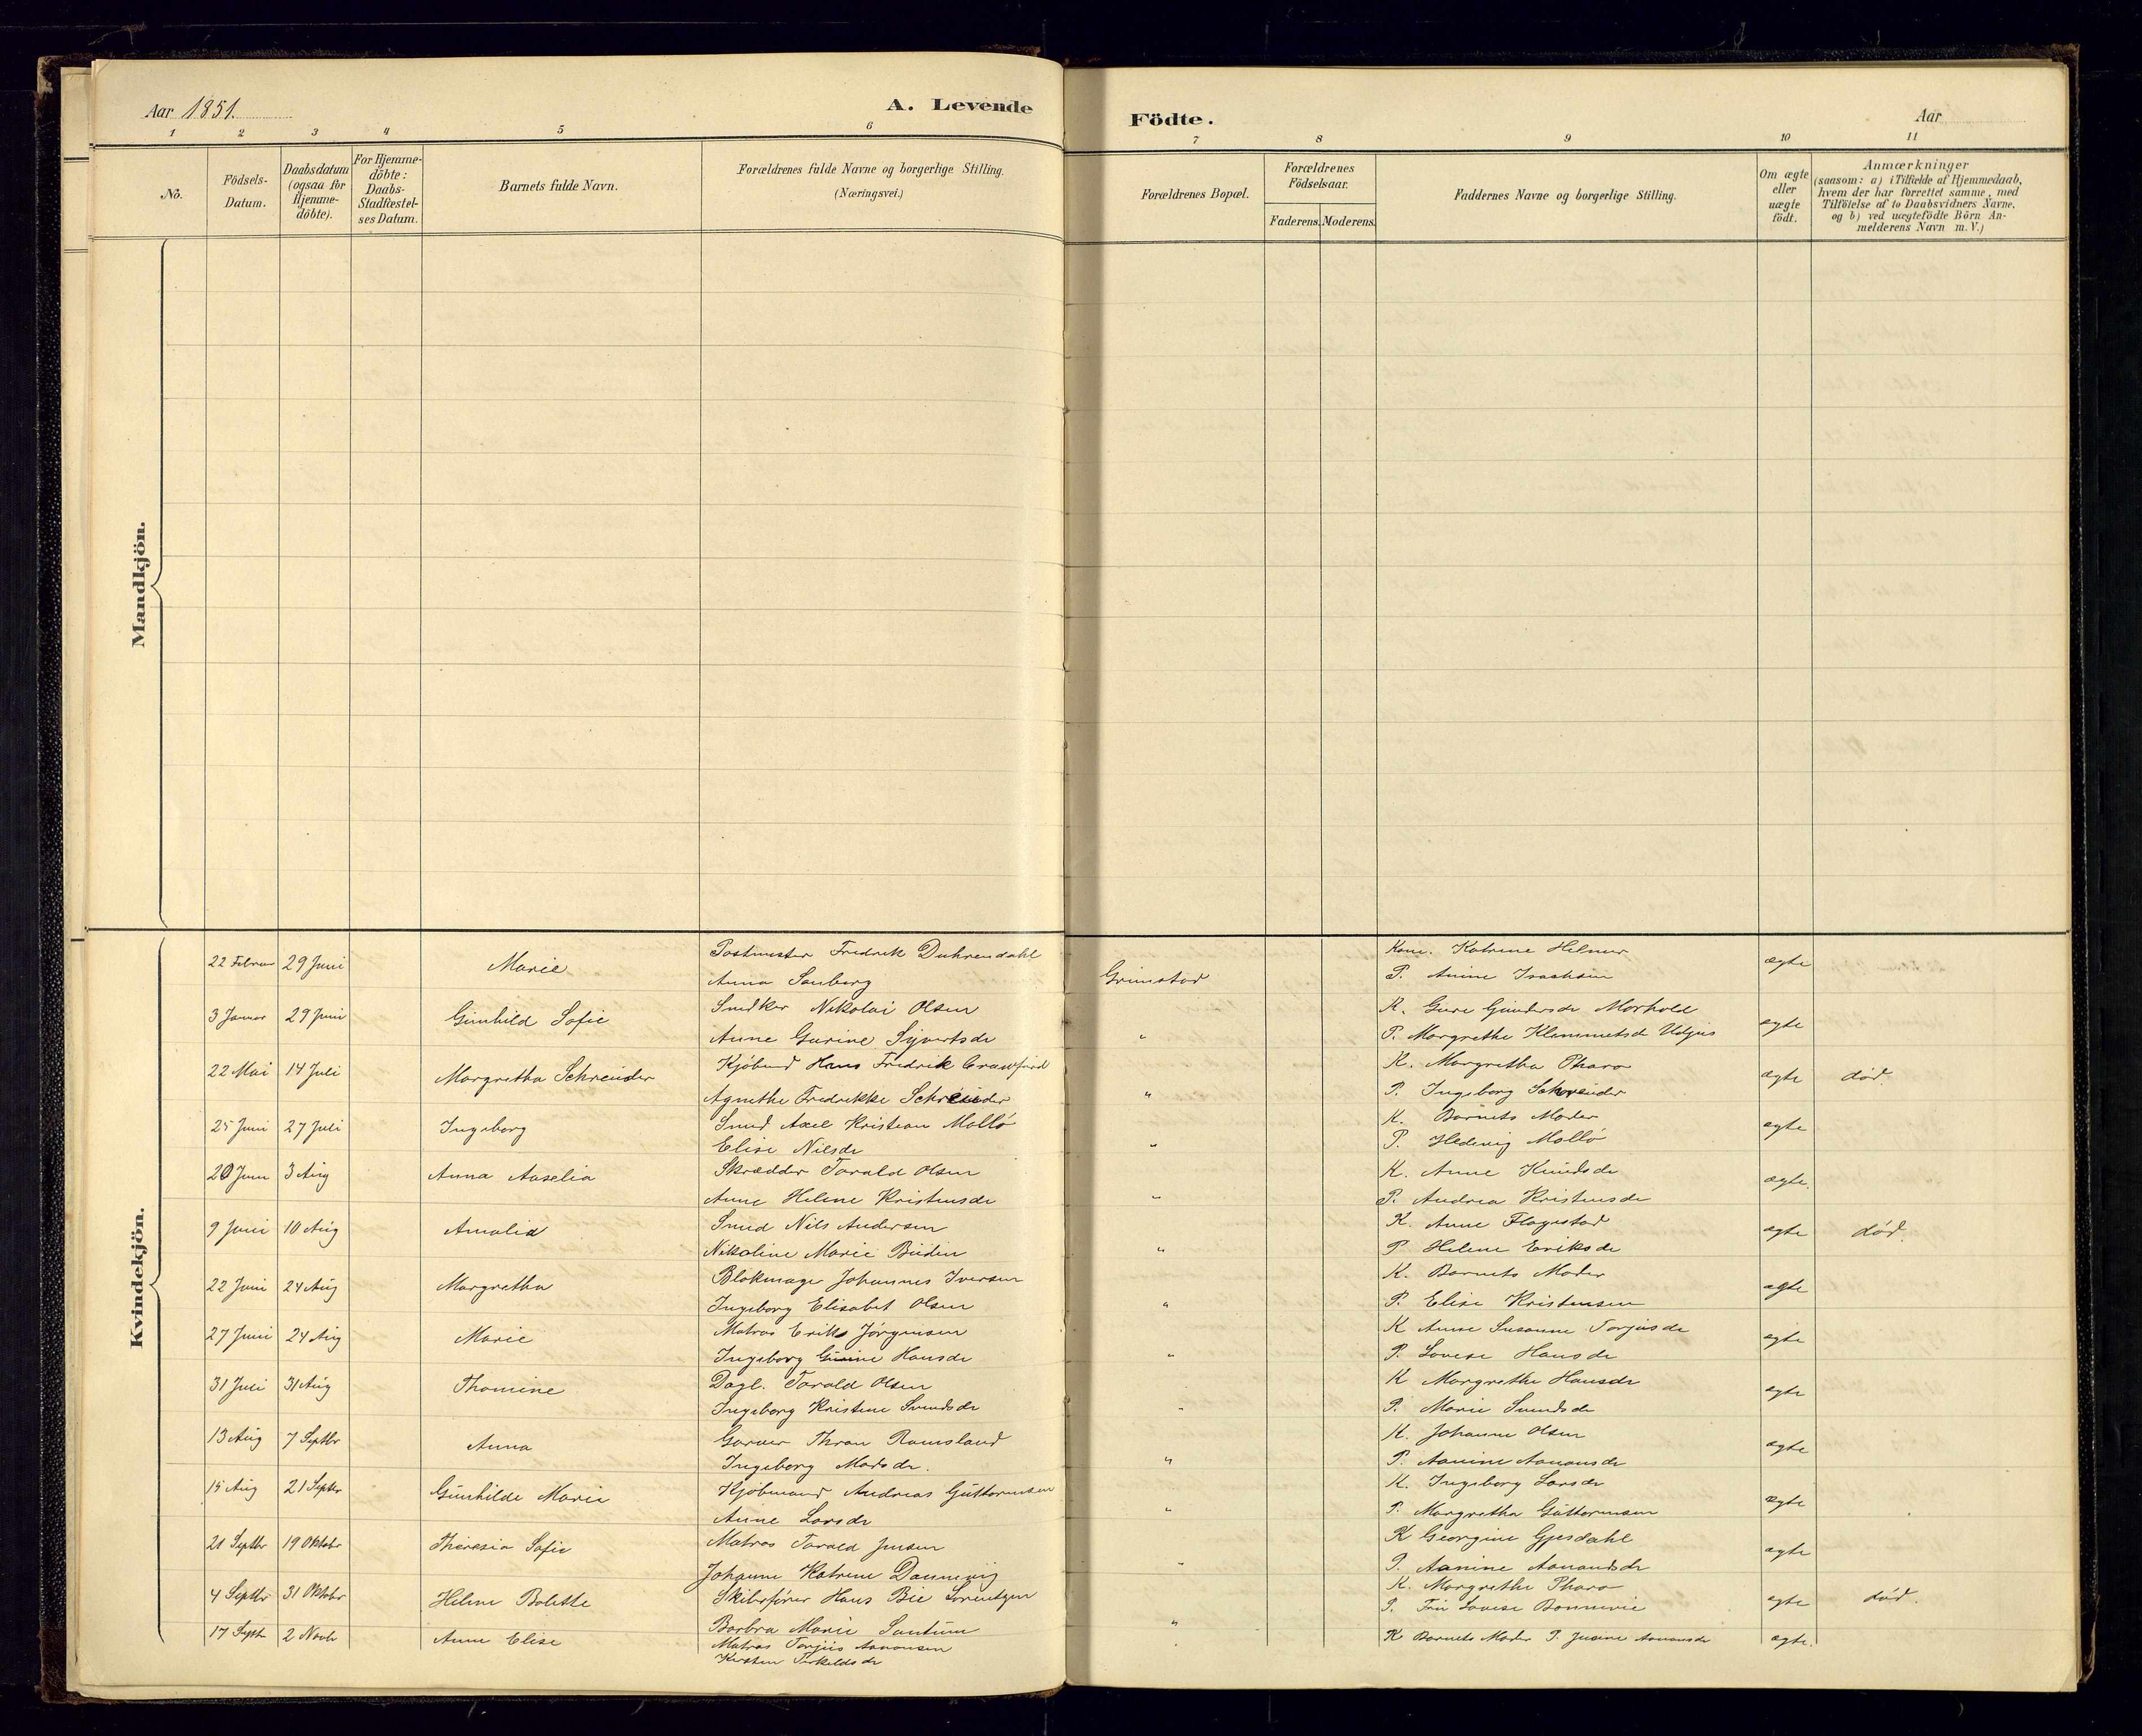 Aar 1851. A. Levende Födte. Aar
1 2 3 4 5 6 7 8 9 10 11
No.
Födsels-Datum.
Daabsdatum (ogsaa for Hjemme-döbte).
For Hjemme-döbte: Daabs-Stadfæstel-ses Datum.
Barnets fulde Navn.
Forældrenes fulde Navne og borgerlige Stilling.
(Næringsvei.)
Forældrenes Bopæl.
Forældrenes Födselsaar.
Faderens. Moderens.
Faddernes Navne og borgerlige Stilling.
Om ægte eller uægte födt.
Anmærkninger
(saasom: a) i Tilfælde af Hjemmedaab,
hvem der har forrettet samme, med
Tilföielse af to Daabsvidners Navne,
og b) ved uægtefödte Börn An-
melderens Navn m. V.)
Mandkjön.
Kvindekjön.
22 Februar 29 Juni Marie Postmester Fredrik Duhrendahl Grimstad Kone. Katrine Helmer ægte
Anna Sanberg P. Anine Isachsen
3 Januar 29 Juni Gunhild Sofie Snedker Nikolai Olsen " K. Gure Gundersdr Morhold ægte
Anne Gurine Syvertsdr P. Margrethe Klemmetsdr
22 Mai 14 Juli Margretha Schreuder Kjöbmd Hans Fredrik Crawfurd " K. Margretha Pharo ægte död.
Agnethe Fredrikke Schreuder P. Ingeborg Schreuder
25 Juni 27 Juli Ingeborg Smed Axel Kristian Mollö " K. Barnets Moder ægte
Elise Nilsdr P. Hedevig Mollö
20 Juni 3 Aug Anna Aaselia Skrædder Torald Olsen " K. Anne Knudsdr ægte.
Anne Helene Kristensdr P. Andrea Kristensdr
9 Juni 10 Aug Amalia Smed Nils Andersen " K. Anne Flagestad ægte död.
Nikoline Marie Budin P Helene Eriksdr
22 Juni 24 Aug Margretha Blokmager Johannes Iversen " K. Barnets Moder ægte
Ingeborg Elisabet Olsen P. Elise Kristensen
27 Juni 24 Aug Marie Matros Erik Jörgensen " K Anne Susanne Torjusdr ægte
Ingeborg Hansdr P. Lovese Hansdr
31 Juli 31 Aug Thomine Dagl. Torald Olsen " K Margrethe Hansdr ægte
Ingeborg Kristine Svendsdr P. Marie Svendsdr
13 Aug 7 Septbr Anna Garver Thran Ramsland " K. Johanne Olsen ægte
Ingeborg Madsdr. P. Aanine Aanonsdr
15 Aug 21 Septbr Gunhilde Marie Kjöbmand Andreas Guttormsen " K. Ingeborg Larsdr ægte
Anne Larsdr P. Margretha Guttormsen
21 Septbr 19 Oktobr Theresia Sofie Matros Torald Jensen " K Georgine Gjesdahl ægte
Johanne Katrine Dannevig P. Aanine Aanonsdr
4 Septbr 31 Oktobr Helene Bolette Skibsförer Hans Bie Lorentzen " K. Margrethe Pharo ægte död.
Barbra Marie P. Fru Lovese Bonnevie
17 Septr 2 Novb Anne Elise Matros Torjus Aanonsen " K Barnets Moder P. Aanonsdr ægte.
Kirsten Terkeldsdr